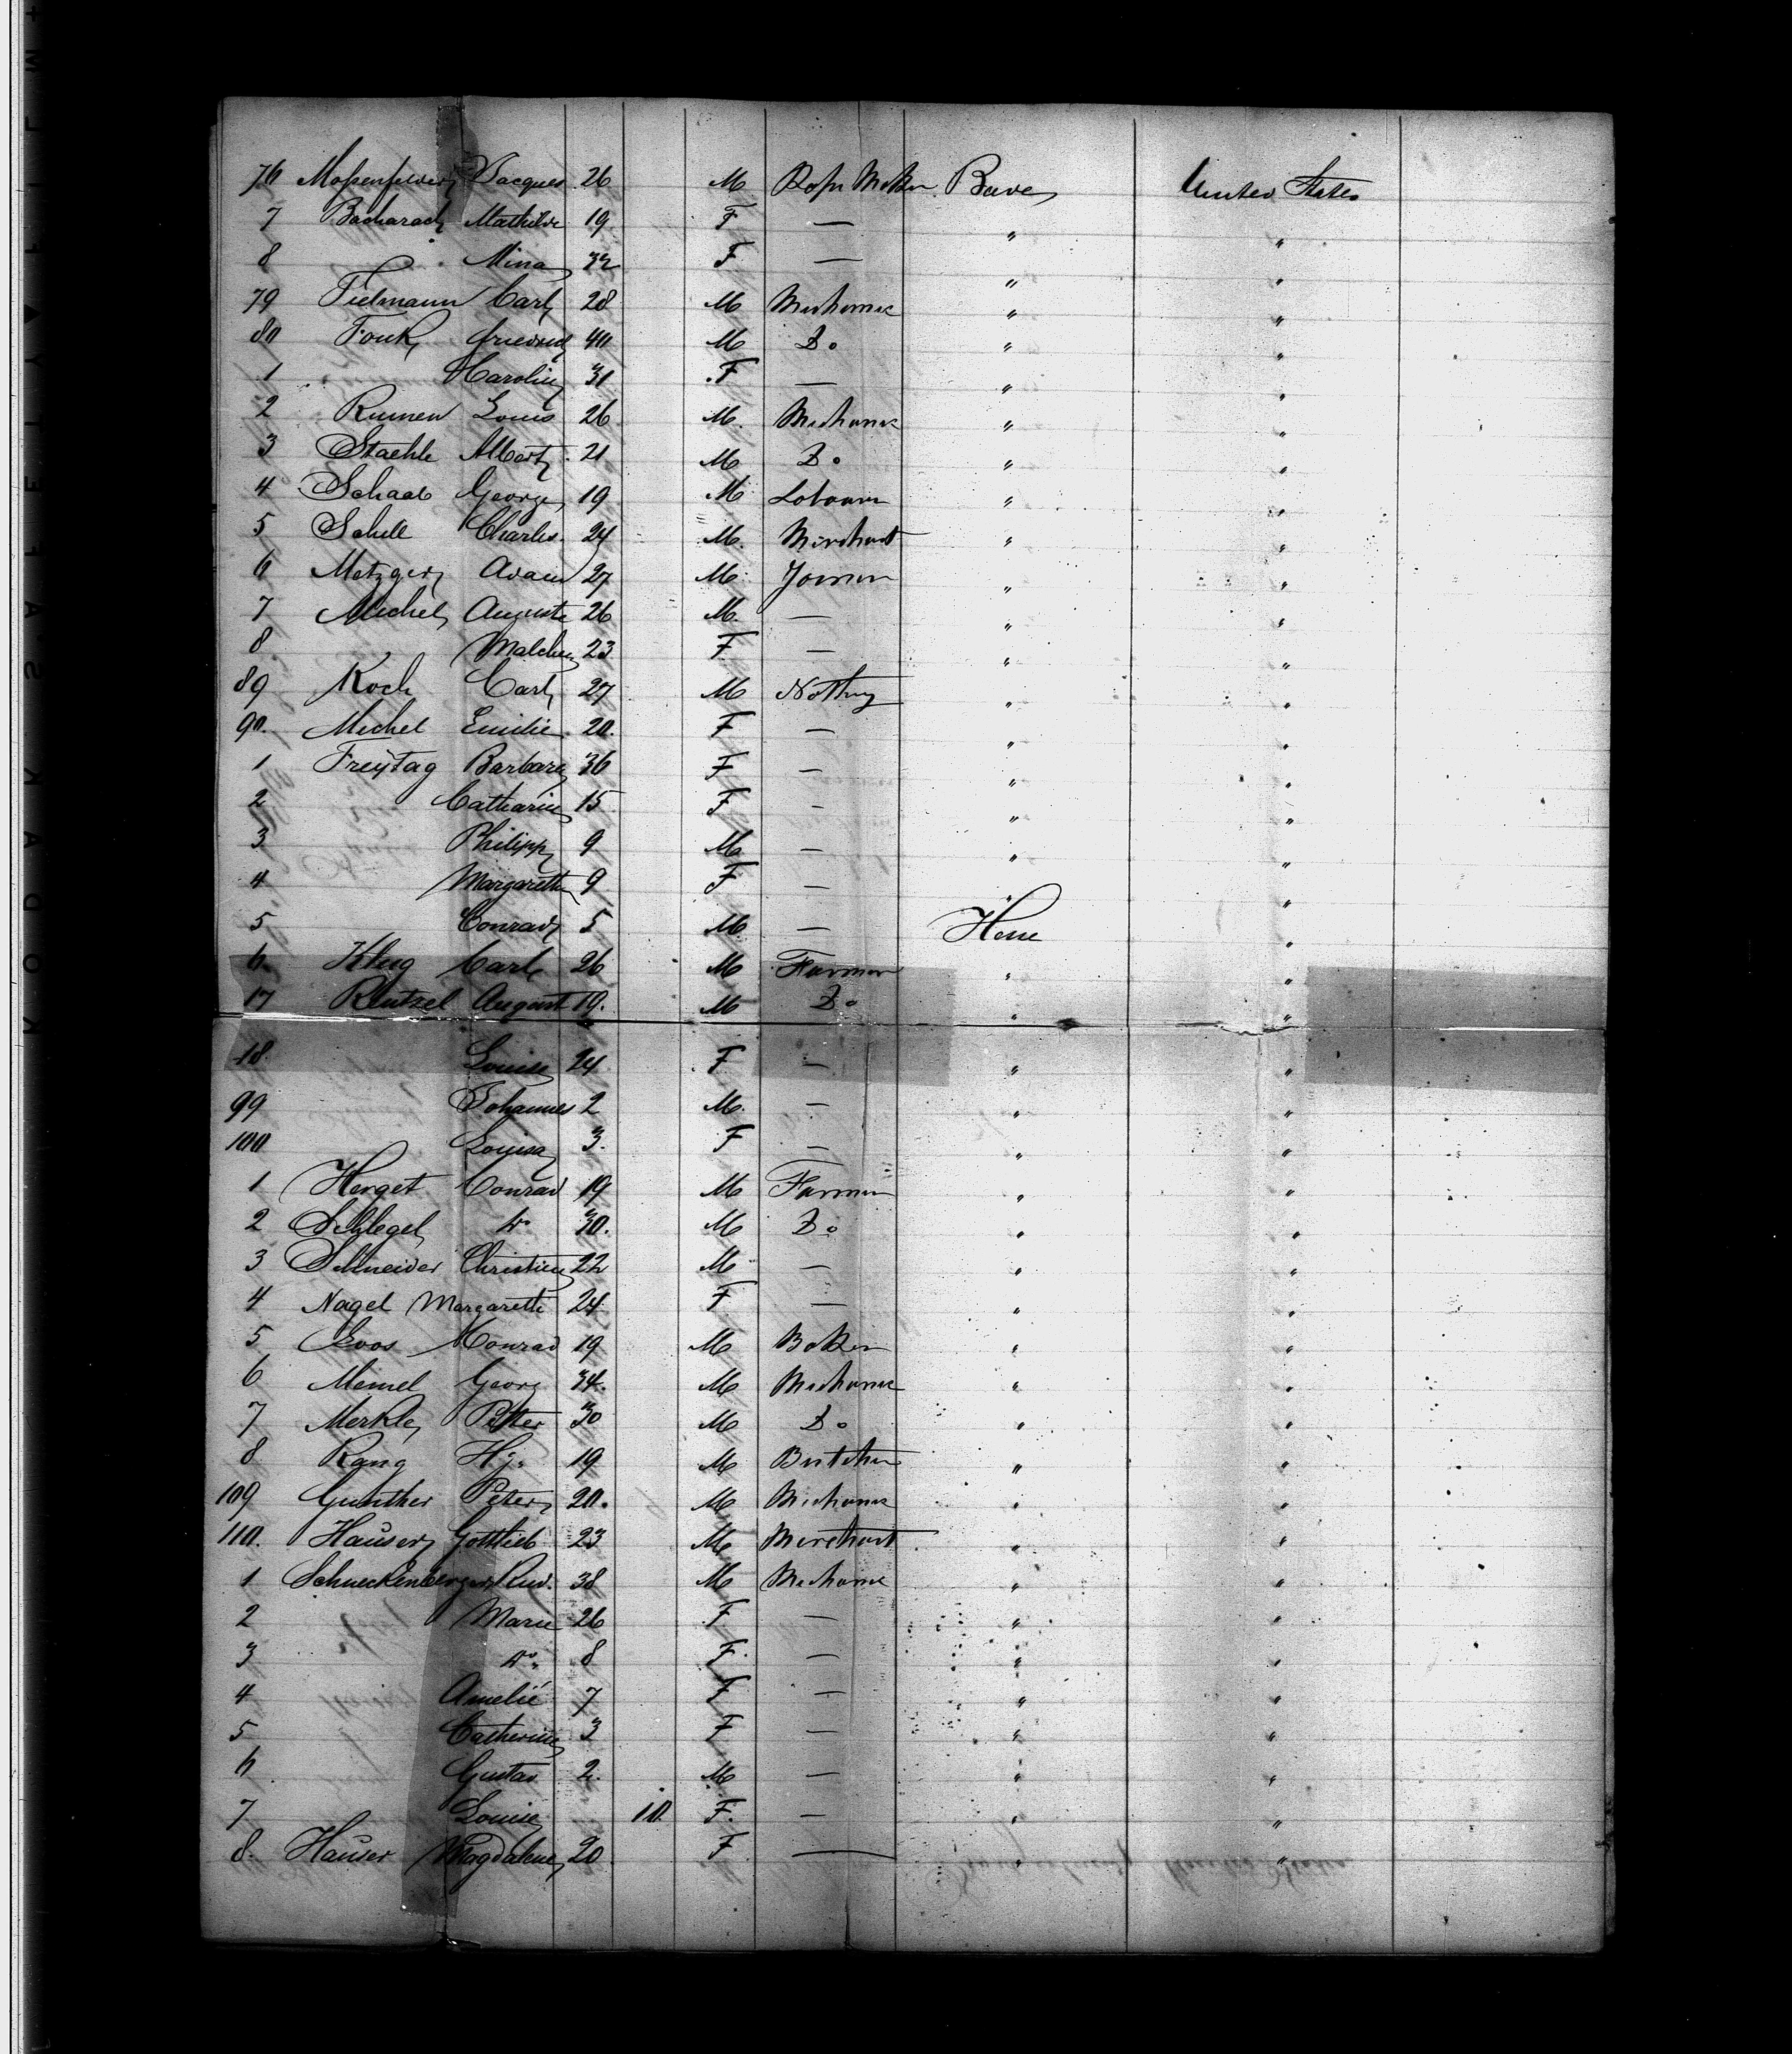 76 Mossenfelder Jacques 26 M Rope Maker Bave United States
7 Bacharach Mathilde 19 F — " "
8 " Mina 32 F — " "
79 Tielmann Carl 28 M Mechanic " "
80 Fouk Friedrich 40 M Do " "
1 Caroline 31 F — " "
2 Rumen Louis 26 M. Mechanic " "
3 Staehle Albert 21 M Do " "
4 Schaab George 19 M Labourer " "
5 Schell Charles 24 M. Merchant " "
6 Metzger Adam 27 M. Joiner " "
7 Michel Auguste 26 M. — " "
8 Malchen 23 F. — " "
89 Koch Carl 27 M Nothing " "
90. Michel Emilie 20. F — " "
1 Freytag Barbara 36 F — " "
2 Catharine 15 F — " "
3 Philipp 9 M — " "
4 Margaretha 9 F — " "
5 Conrad 5 M. — Hesse "
6. Klug Carl 26 M Farmer " "
17 Rentzel August 19. M Do " "
18. Louise 24 F — " "
99 Johannes 2 M. — " "
100 Louisa 3. F — " "
1 Herget Conrad 19 M Farmer " "
2 Schlegel do 30. M Do " "
3 Schneider Christian 22 M — " "
4 Nagel Margarethe 24. F — " "
5 Loos Conrad 19 M Baker " "
6 Meinel Georg 34. M Mechanic " "
7 Merkle Peter 30 M Do " "
8 Rang Hy. 19 M Butcher " "
109 Gunther Peter 20. M Mechanic " "
110. Hauser Gottlieb 23 M Merchant " "
1 Schneckenberger Rud. 38 M Mechanic " "
2 Marie 26 F — " "
3 do 8 F. — " "
4 Amelie 7 F — " "
5 Catherine 3 F — " "
6 Gustav 2. M — " "
7 Louise 10. F. — " "
8. Hauser Magdalene 20 F — " "